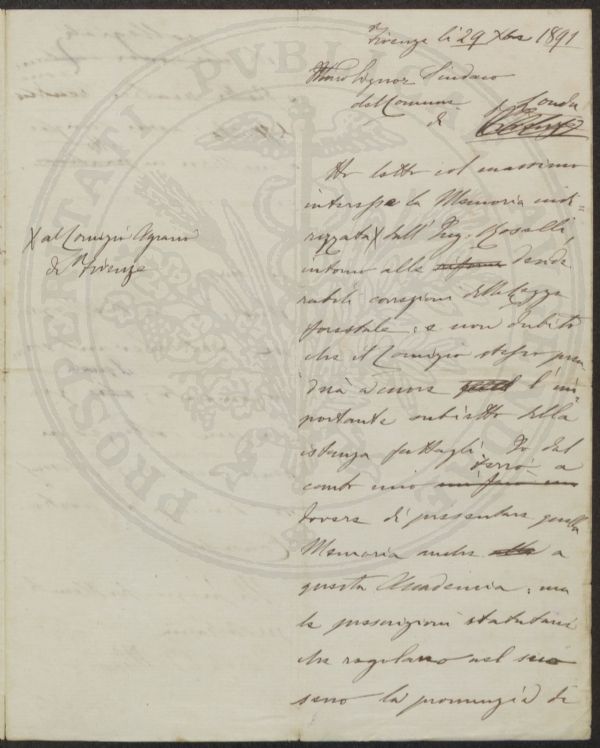 Firenze li 29 Xbre 1891
Illmo Signor Sindaco
del Comune
di Londa
Ho letto col massimo
interesse la Memoria indi=
rizzata X dall' Ing. Roselli,
intorno alle riforme deside
rabili correzioni della Legge
forestale; e non dubito
che il Comizio stesso pren
derà a cuore l' im=
portante subietto della
istanza fattagli. Io dal
canto mio terrò a
dovere di presentare quella
Memoria anche alla a
questa Accademia; ma
le prescrizioni statutarie
che regolano nel suo
seno la pronunzia di
X al Comizio Agrario
di Firenze
PROSPERITATI PUBLICAE AUGENDAE